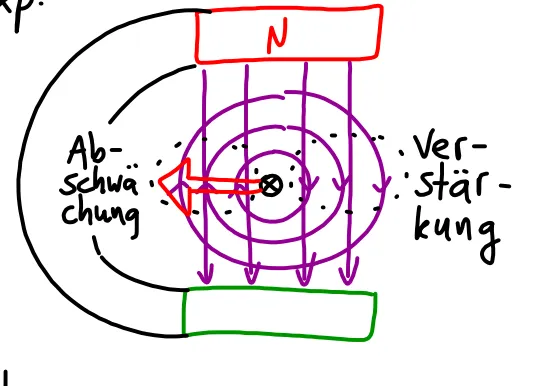 xp.
N
Ab-
schwä
chung
Ver-
stär-
kung